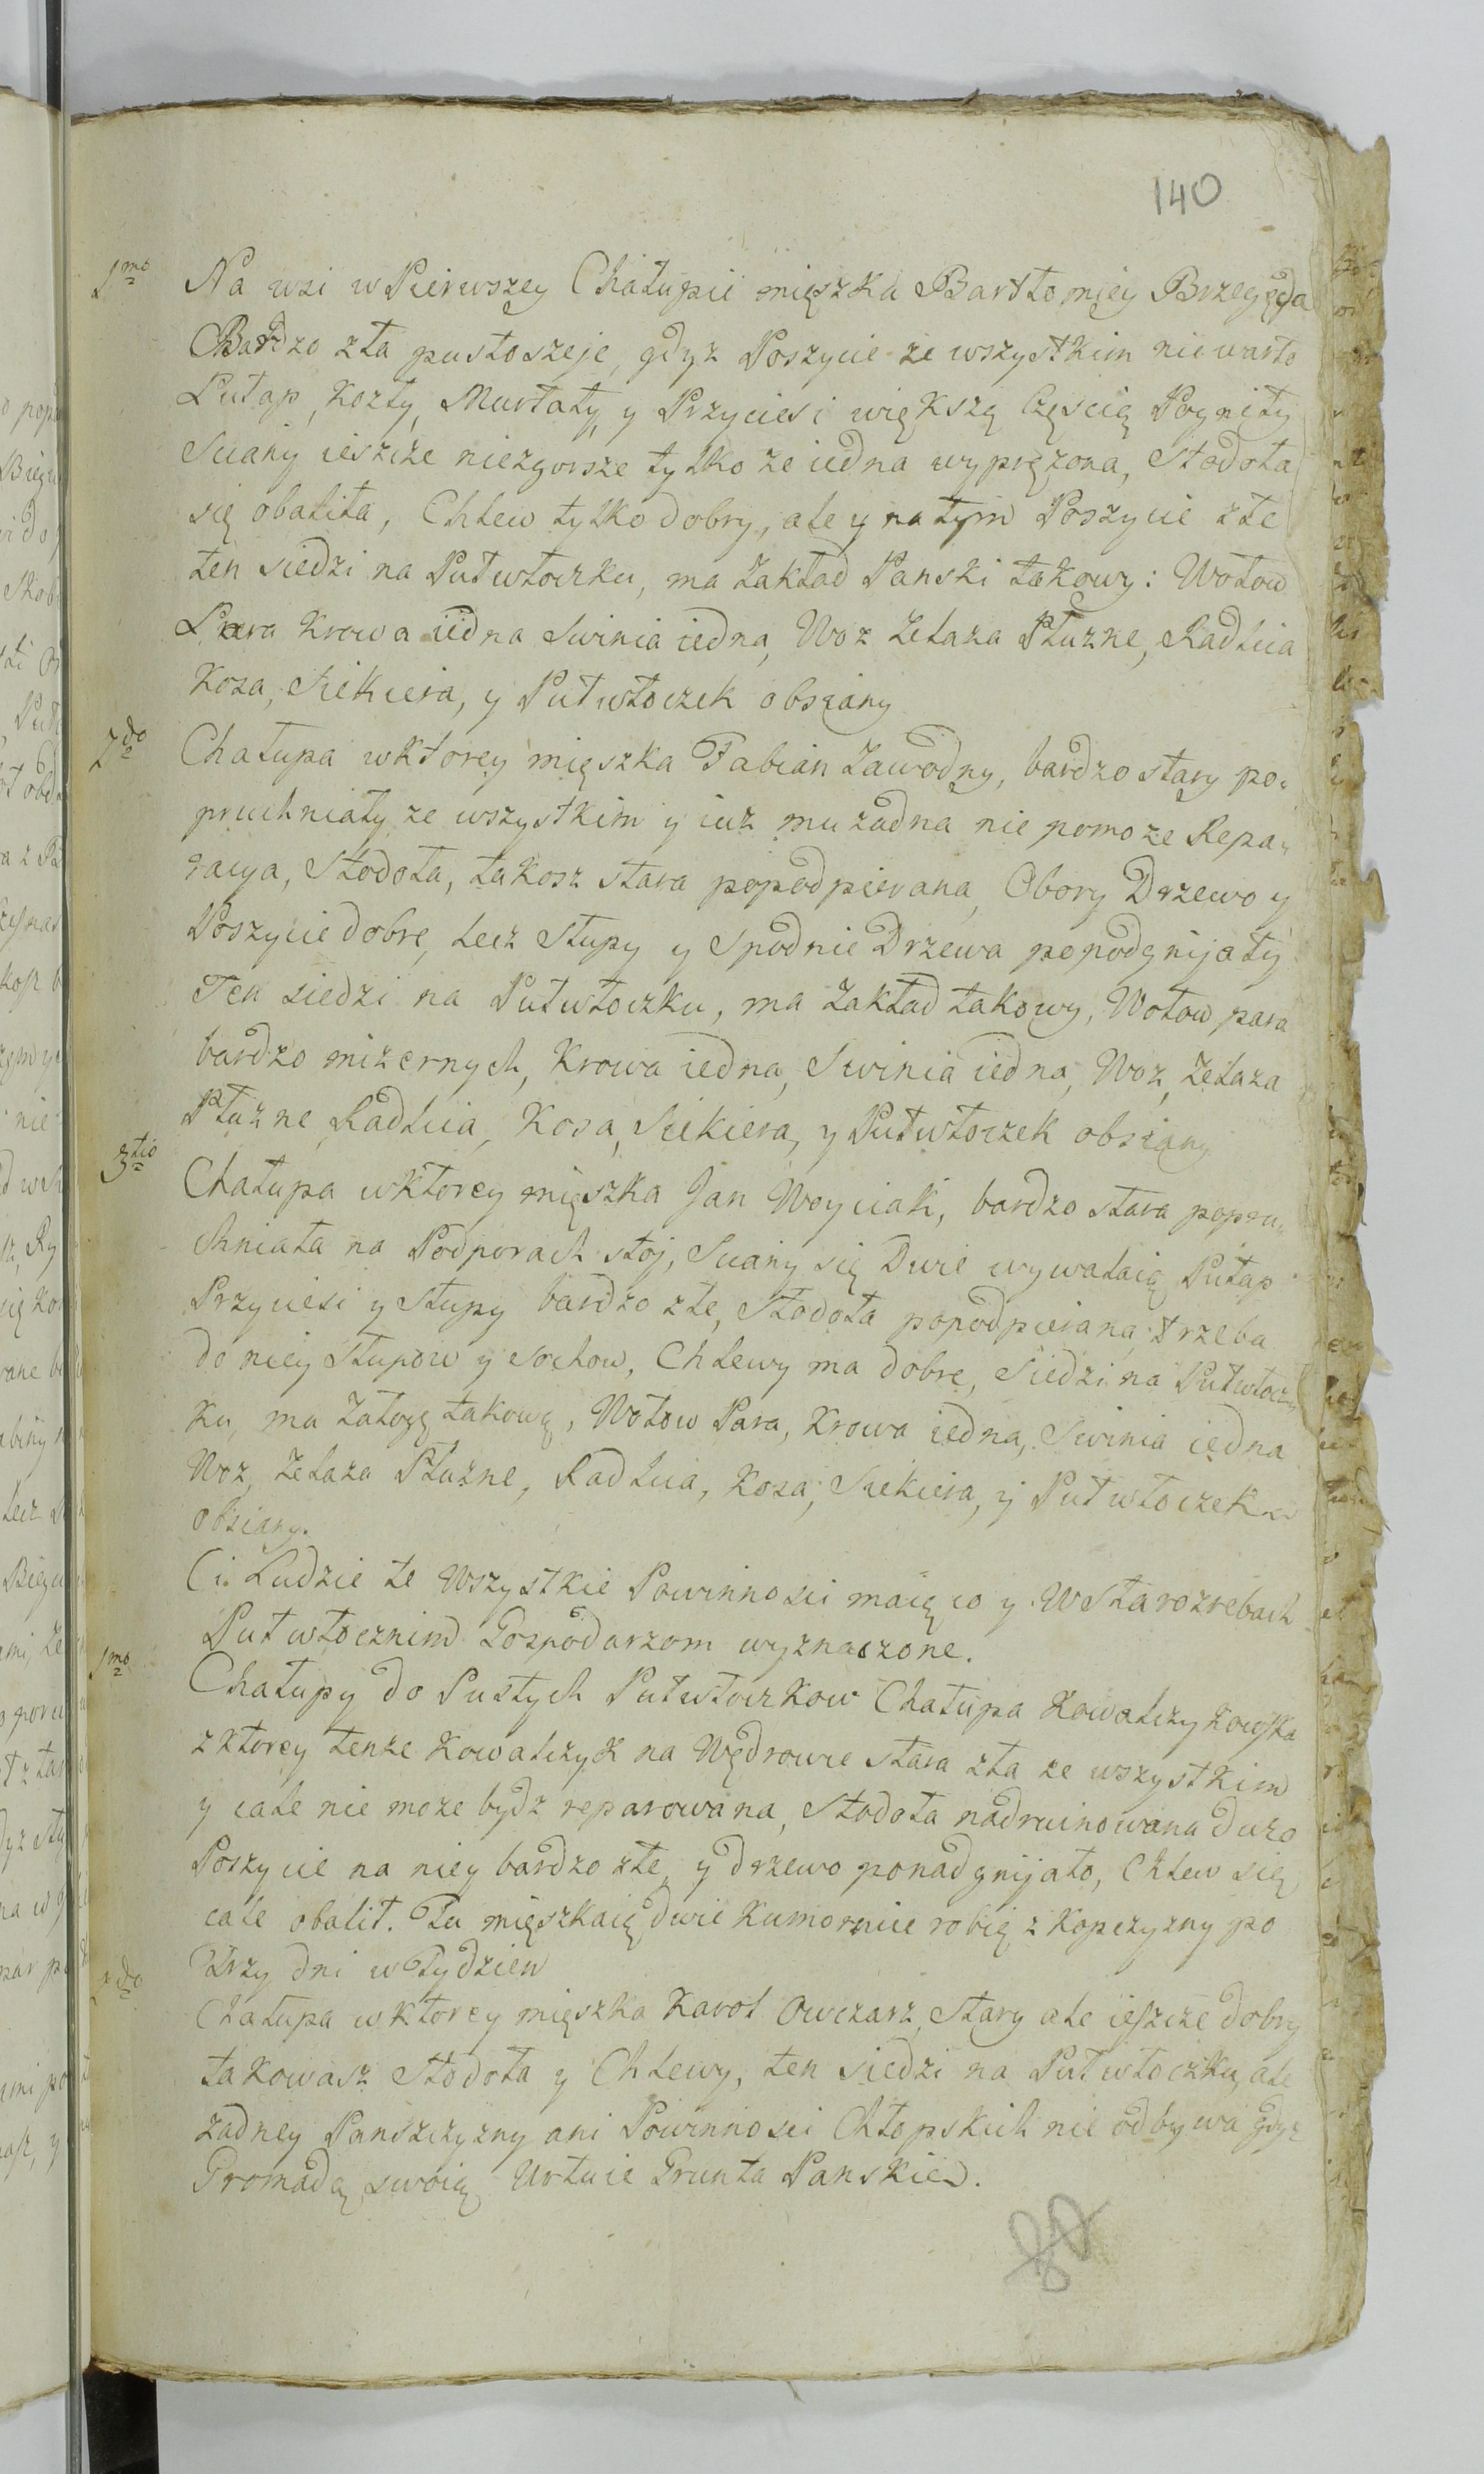 140
1mo Na wsi w Pierwszey Chałupie mięszka Bartłomiey Brzegęda
Bardzo zła pustoszeje, gdyz Poszycie ze wszystkim nie warto
Pułap, Kozły, Murłaty, y Przyciesi większą Częscią Pogniły
Sciany ieszcze niezgorsze tylko ze iedna wyprężona, Stodoła
się obaliła, Chlew tylko dobry, ale y na tym Poszycie złe
ten siedzi na Pułwłoczku, ma Zakład Panski takowy: Wołow
Para Krowa iedna Swinia iedna, Woz Zelaza Płuzne, Radlica
Kosa, Siekiera, y Pułwłoczek obsiany
2do Chałupa w Ktorey mięszka Fabian Zawodny, bardzo stary po=
pruchniały ze wszystkim y iuz mu zadna nie pomoze Repa=
racya, Stodoła, takosz stara popodpierana, Obory Drzewo y
Poszycie dobre, lecz Słupy y Spodnie Drzewa popodgnijały
Ten siedzi na Pułwłoczku, ma Zakład takowy, Wołow para
bardzo mizernych, Krowa iedna, Swinia iedna, Woz, Zelaza
Płuzne Radlica, Kosa, Siekiera, y Pułwłoczek obsiany
3tio Chałupa w Ktorey mięszka Jan Woyciak, bardzo stara popru=
chniała na Podporach stoj, Sciany się Dwie wywalaią Pułap
Przyciesi y Słupy bardzo złe, Stodoła popodpierana trzeba
do niey Słupow y Sochow, Chlewy ma dobre, Siedzi na Pułwłocz=
ku, ma Załogę takową, Wołow Para, Krowa iedna, Swinia iedna
Woz, Zelaza Płuzne, Radlica, Kosa, Siekiera, y Pułwłoczek
obsiany.
Ci Ludzie te Wszystkie Powinnosci maią co y W Starozrebach
Pułwłocznim Gospodarzom wyznaczone.
1mo Chałupy do Pustych Pułwłoczkow Chałupa Kowalczykowska
z ktorey tenze Kowalczyk na Wędrowce stara zła ze wszystkim
y cale nie moze bydz reparowana, Stodoła nadruinowana duzo
Poszycie na niey bardzo złe, y drzewo ponadgnijało, Chlew się
cale obalił. Tu mięszkaią dwie Kumornice robią z Kopczyzny po
Trzy dni w Tydzien
2do Chałupa w Ktorey mięszka Karol Owczarz, Stary ale ieszcze dobry
takowasz Stodoła y Chlewy, ten siedzi na Pułwłoczku, ale
zadney Panszczyzny ani Powinnosci Chłopskich nie odbywa gdyz
Gromadą swoią Urtuie Grunta Panskie.